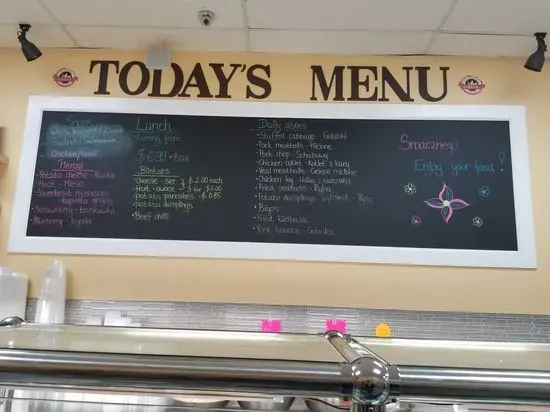 TODAY'S MENU
Soups
White borscht
Chicken
Pierogi
Potato cheese - Ruskie
Meat - Mięso
Sauerkraut mushrooms
- kapusta grzyby
Strawberry - truskawka
Blueberry - Jagoda
Lunch
Starting from
$ 6.99 + tax
Blintzes
Cheese - ser
$ 2.00 each
fruit - owoce
3 for $5.00
potato pancakes - $ 0.85
potato dumplings
Beef chilli
Daily dishes
Stuffed cabbage Gołąbki
Pork meatballs - Mielone
Pork chop - Schabowy
Chicken cutlet - Kotlet z kury
Veal meatballs -
Chicken leg -
Fried
Potato dumplings w/meat - Pyzy
Bigos
Fried kielbasa
Pork knuckle - Golonka
Smacznego!
Enjoy your food!